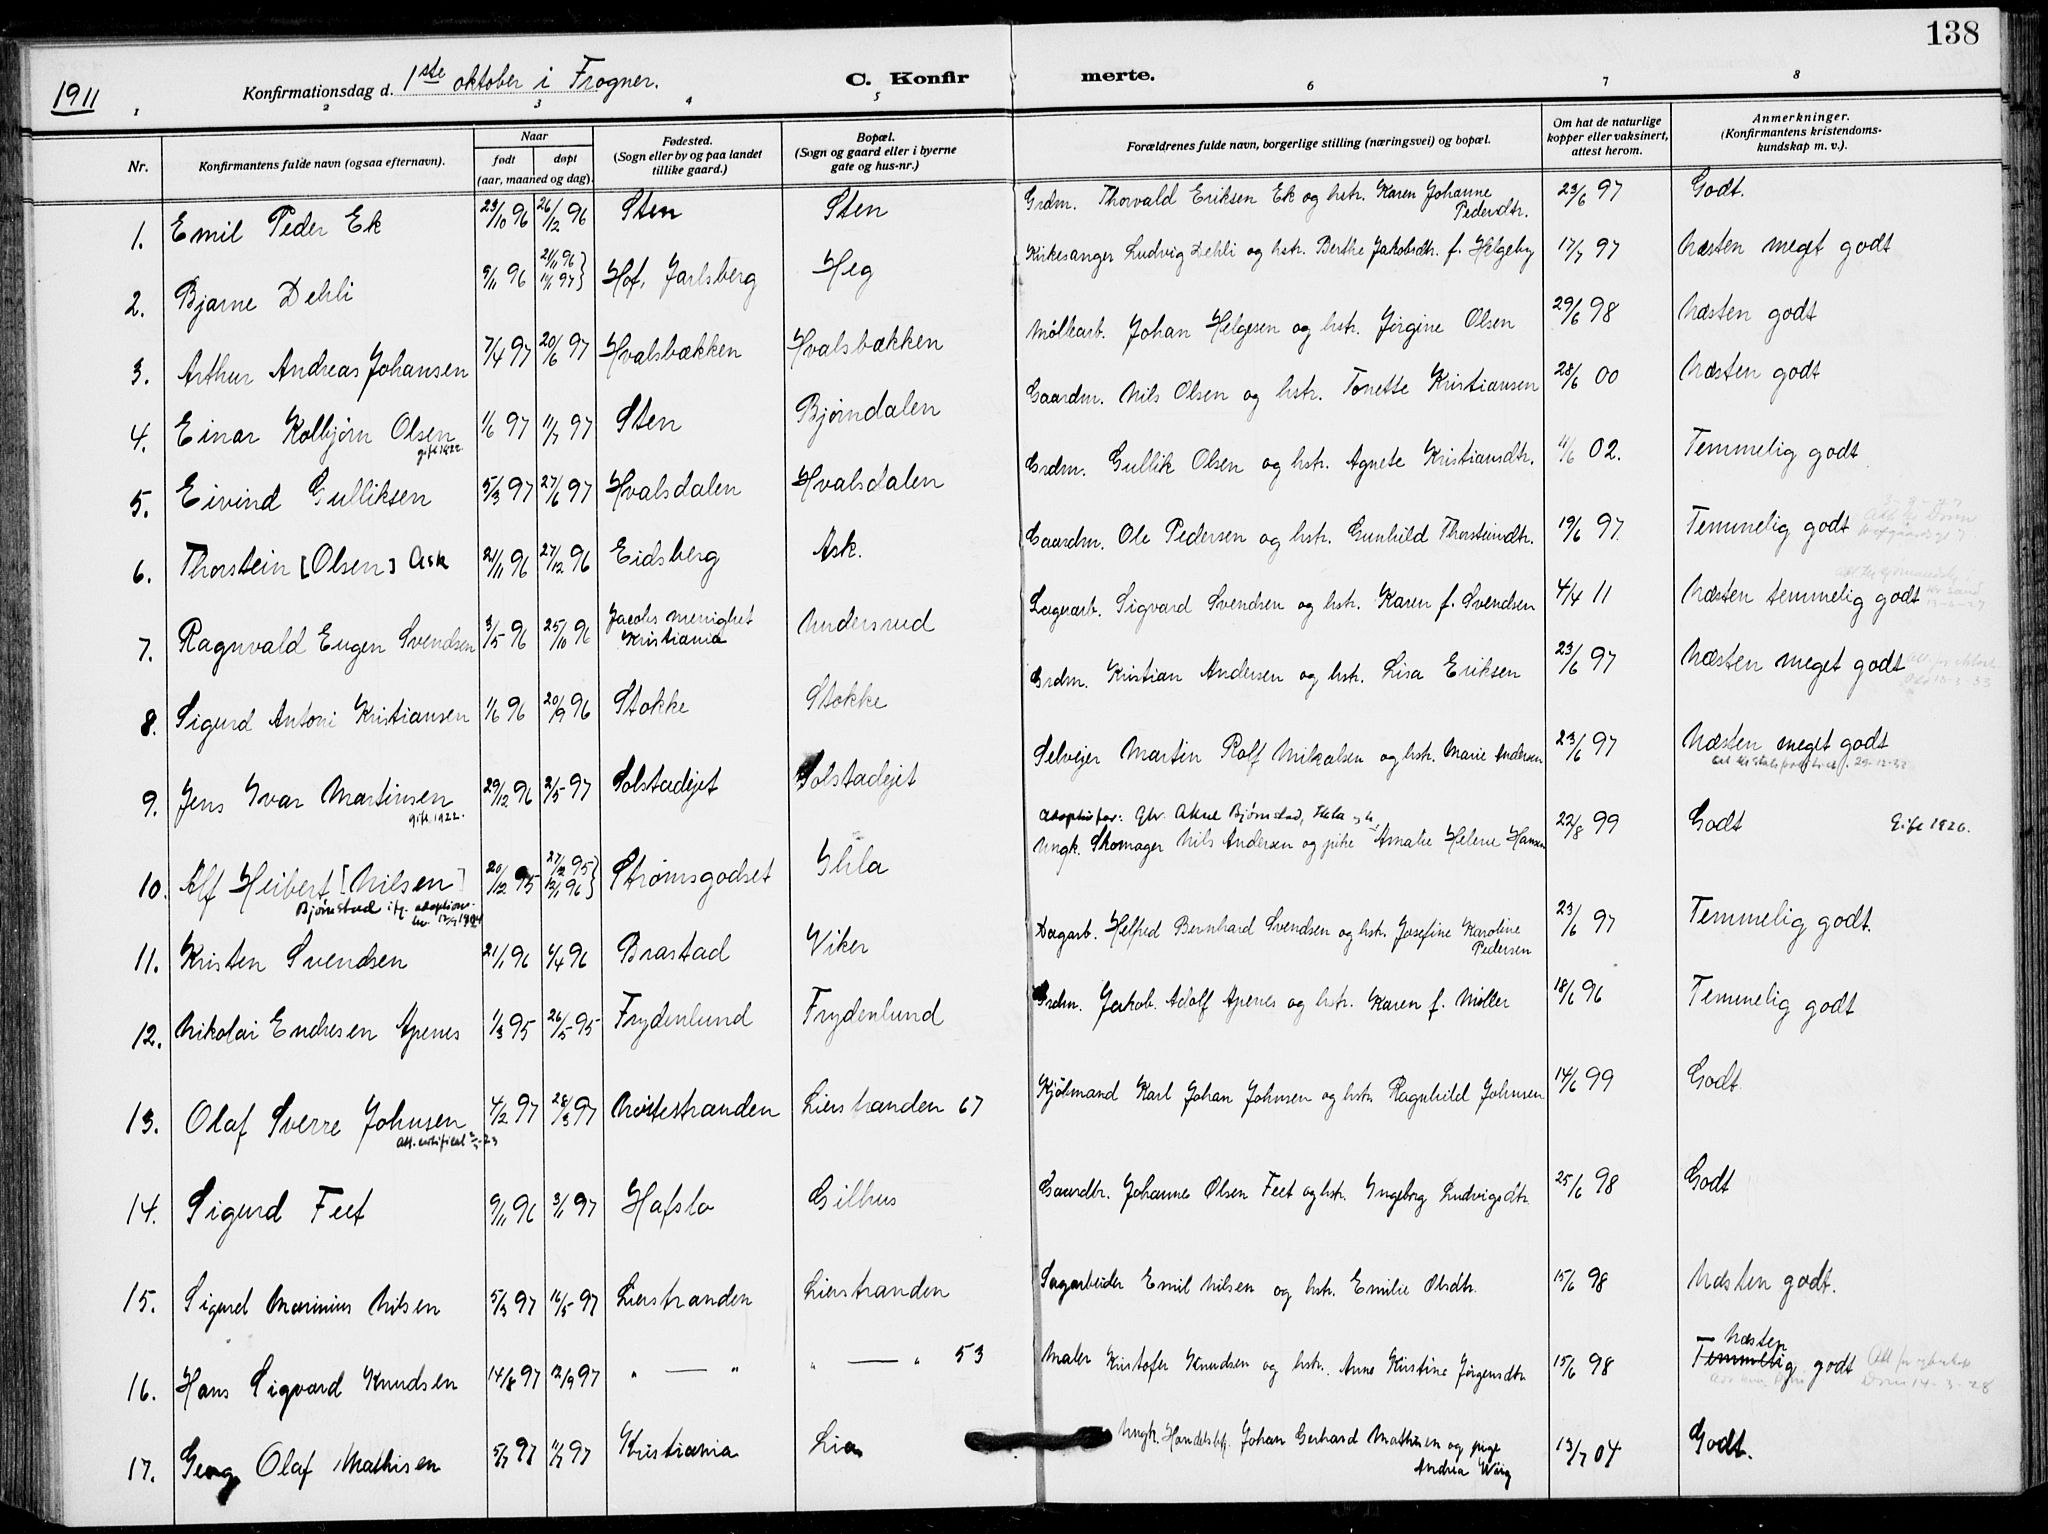 138
1911 Konfirmationsdag d. 1ste oktober i Frogner. C. Konfirmerte.
1 2 3 4 5 6 7 8
Nr. Konfirmantens fulde navn (ogsaa efternavn). Naar født døpt (aar, maaned og dag). Fødested. (Sogn eller by og paa landet tillike gaard.) Bopæl. (Sogn og gaard eller i byerne gate og hus-nr.) Forældrenes fulde navn, borgerlige stilling (næringsvei) og bopæl. Om hat de naturlige kopper eller vaksinert, attest herom. Anmerkninger. (Konfirmantens kristendomskundskap m. v.).
1. Emil Peder Ek 23/10 96 26/12 96 Sten Sten Grdm. Thorvald Eriksen Ek og hstr. Karen Johanne Pedersdtr. 23/6 97 Godt.
2. Bjarne Dehli 9/11 96 21/11 96 } 11/1 97 } Hof, Jarlsberg Heg Kirkesanger Ludvig Dehli og hstr. Berthe Jakobsdtr. f. Helgeby 17/7 97 Næsten meget godt
3. Arthur Andreas Johansen 7/4 97 20/6 97 Hvalsbækken Hvalsbækken Møllearb. Johan Helgesen og hstr. Jørgine Olsen 29/6 98 Næsten godt
4. Einar Kolbjørn Olsen 1/6 97 11/7 97 Sten Bjørndalen Gaardm. Nils Olsen og hstr. Tonette Kristiansen 28/6 00 Næsten godt
gift 1922.
5. Eivind Gulliksen 5/3 97 27/6 97 Hvalsdalen Hvalsdalen Grdm. Gullik Olsen og hstr. Agnete Kristiansdtr. 11/6 02. Temmelig godt
6. Thorstein [Olsen] Ask 21/11 96 27/12 96 Eidsberg Ask. Gaardm. Ole Pedersen og hstr. Gunhild Thorsteindtr. 19/6 97. Temmelig godt
7. Ragnvald Eugen Svendsen 3/5 96 25/10 96 Jacobs menighet Kristiania Undersrud Lagerarb. Sigvard Svendsen og hstr. Karen f. Svendsen 4/4 11 Næsten temmelig godt
8. Sigurd Antoni Kristiansen 1/6 96 20/9 96 Stokke Stokke Grdm. Kristian Andersen og hstr. Lisa Eriksen 23/6 97 Næsten meget godt
9. Jens Ivar Martinsen 29/12 96 2/5 97 Solstadejet Solstadejet Selvejer Martin Rolf Mikalsen og hstr. Marie Andersen 23/6 97 Næsten meget godt
gift 1922.
10. Alf Heibert [Nilsen] 20/12 95 27/12 95 } 12/1 96 } Strømsgodset Ihla Ungk. Skomager Nils Andersen og pike Amalie Helene Hansen 22/8 99 Godt Gift 1926.
Bjørnstad
11. Kristen Svendsen 21/1 96 4/4 96 Brastad Viker Dagarb. Helfred Bernhard Svendsen og hstr. Josefine Karoline Pedersen 23/6 97 Temmelig godt.
12. Nikolai Endresen Apenes 1/3 95 26/5 95 Frydenlund Frydenlund Grdm. Jakob Adolf Apenes og hstr. Karen f. Møller 18/6 96 Temmelig godt
13. Olaf Sverre Johnsen 4/2 97 28/3 97 Nøstestranden Lierstranden 67 Kjølmand Karl Johan Johnsen og hstr. Ragnhild Johnsen 14/6 99 Godt
14. Sigurd Feet 9/11 96 3/1 97 Hafslo Gilhus Gaardbr. Johannes Olsen Feet og hstr. Ingeborg Ludvigsdtr. 25/6 98 Godt
15. Sigurd Marinius Nilsen 5/3 97 16/5 97 Lierstranden Lierstranden Sagarbeider Emil Nilsen og hstr. Emilie Olsdtr. 15/6 98 Næsten godt.
16. Hans Sigvard Knudsen 14/8 97 12/9 97 " — " " — " 53 Maler Kristofer Knudsen og hstr. Anne Kristine Jørgensdtr. 15/6 98 Næsten Temmelig godt
17. Georg Olaf Mathisen 5/7 97 11/7 97 Kristiania Lia Ungk. Johan Gerhard Mathisen og pige Andrea Wiig 13/7 04 Godt.